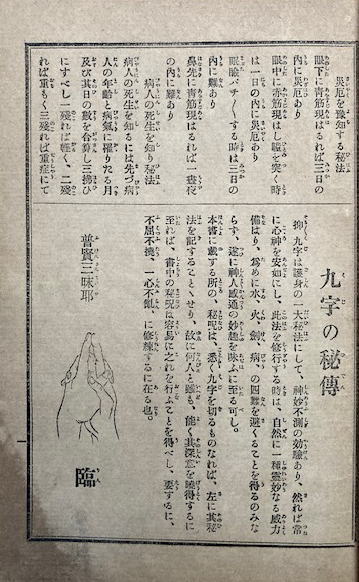 災厄を豫知する秘法
眼下に靑筋現はるれば三日の
內に災厄あり
眼中に赤筋現はし瞳を突く時
は一日の內に災厄あり
眼瞼パチ〳〵する時は三日の
內に難あり
鼻先に靑筋現はるれば一晝夜
の內に難あり
病人の死生を知り秘法
病人の死生を知るには先づ病
人の年齡と病氣に罹りたる月
及び其日の數を合算し三拂ひ
にすべし一殘れば輕く、二殘
れば重もく三殘れば重症にて
九字の秘傳
抑〻九字は護身の一大秘法にして、神妙不測の効驗あり、然れば常
に心神を安如にし、此法を修行する時は、自然に一種靈妙なる威力
備はり、爲めに水、火、劍、病、の四難を避くることを得るのみな
らず、遂に神人感通の妙趣を味ふに至る可し。
本書に載する所の、秘呪は、悉く九字を切るものなれば、左に其秘
法を記することゝせり、故に何人と雖も、能く其深意を曉得するに
至れば、書中の秘呪は容易に之れを行ふことを得べし、要するに、
不屈不撓、一心不亂、に修練するに在る也。
普賢三昧耶
臨